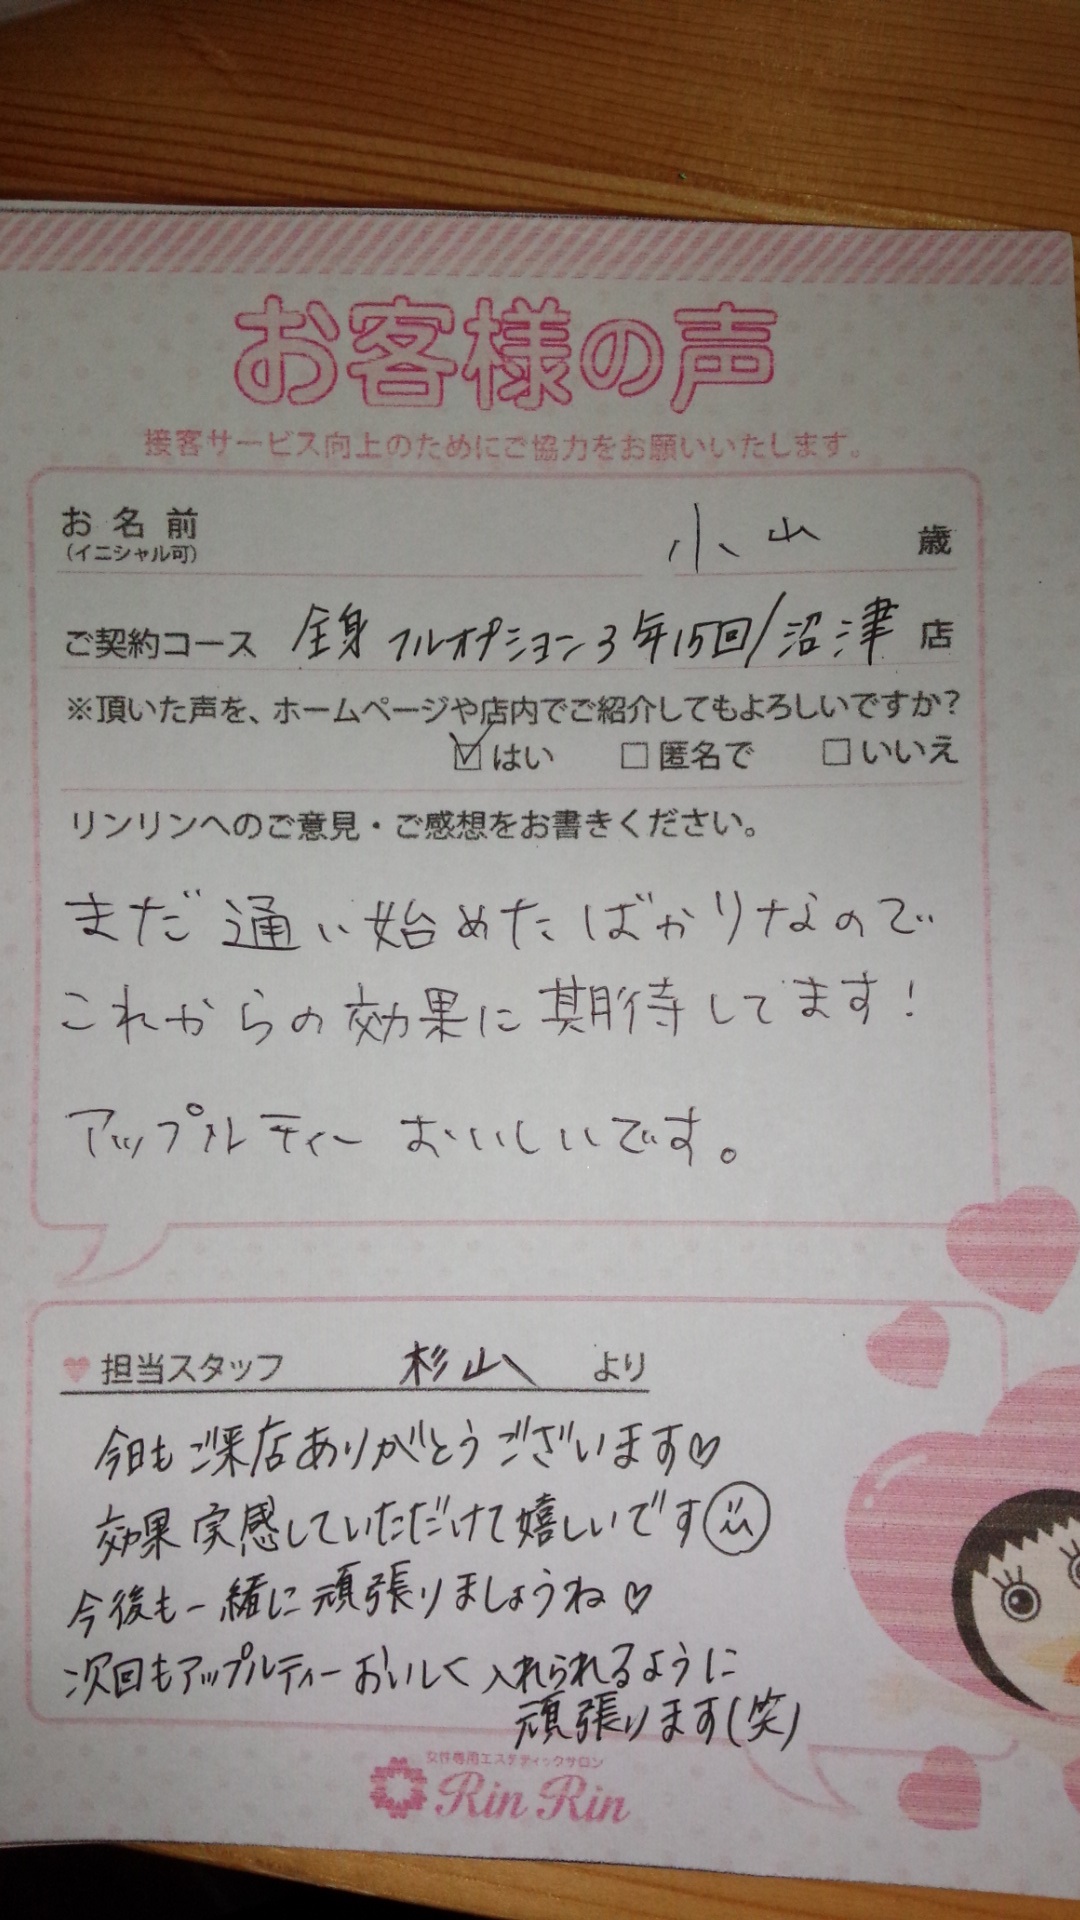 お客様の声
接客サービス向上のためにご協力をお願いいたします。
お名前 小山 歳
(イニシャル可)
ご契約コース 全身フルオプション3年15回/沼津 店
※頂いた声を、ホームページや店内でご紹介してもよろしいですか?
☑はい □匿名で □いいえ
リンリンへのご意見・ご感想をお書きください。
まだ通い始めたばかりなので
これからの効果に期待してます!
アップルティーおいしいです。
♥担当スタッフ 杉山 より
今日もご来店ありがとうございます♡
効果実感していただけて嬉しいです
今後も一緒に頑張りましょうね♡
次回もアップルティーおいしく入れられるように
頑張ります(笑)
女性専用エステティックサロン
Rin Rin